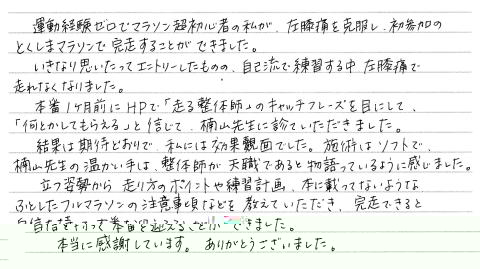 運動経験ゼロでマラソン超初心者の私が、左膝痛を克服し、初参加の
とくしまマラソンで完走することができました。
いきなり思いたってエントリーしたものの、自己流で練習する中、左膝痛で
走れなくなりました。
本番1ケ月前にHPで「走る整体師」のキャッチフレーズを目にして、
「何とかしてもらえる」と信じて、楠山先生に診ていただきました。
結果は期待どおりで、私には効果覿面でした。施術はソフトで、
楠山先生の温かい手は、整体師が天職であると物語っているように感じました。
立つ姿勢から走り方のポイントや練習計画、本に載ってないような
ふとしたフルマラソンの注意事項などを教えていただき、完走できると
自信を持って本番を迎えることができました。
本当に感謝しています。ありがとうございました。